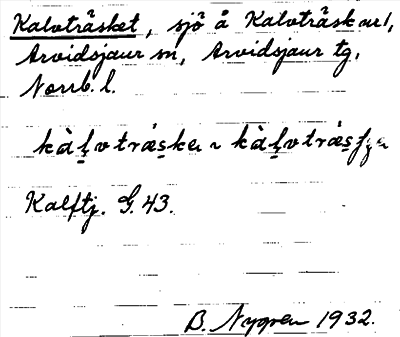 Kalvträsket, sjö å Kalvträskarl,
Arvidsjaur sn, Arvidsjaur tg,
Norrb. l.
kàḷvtrǽska ~
Kalftj. G. 43.
B. Nygren 1932.